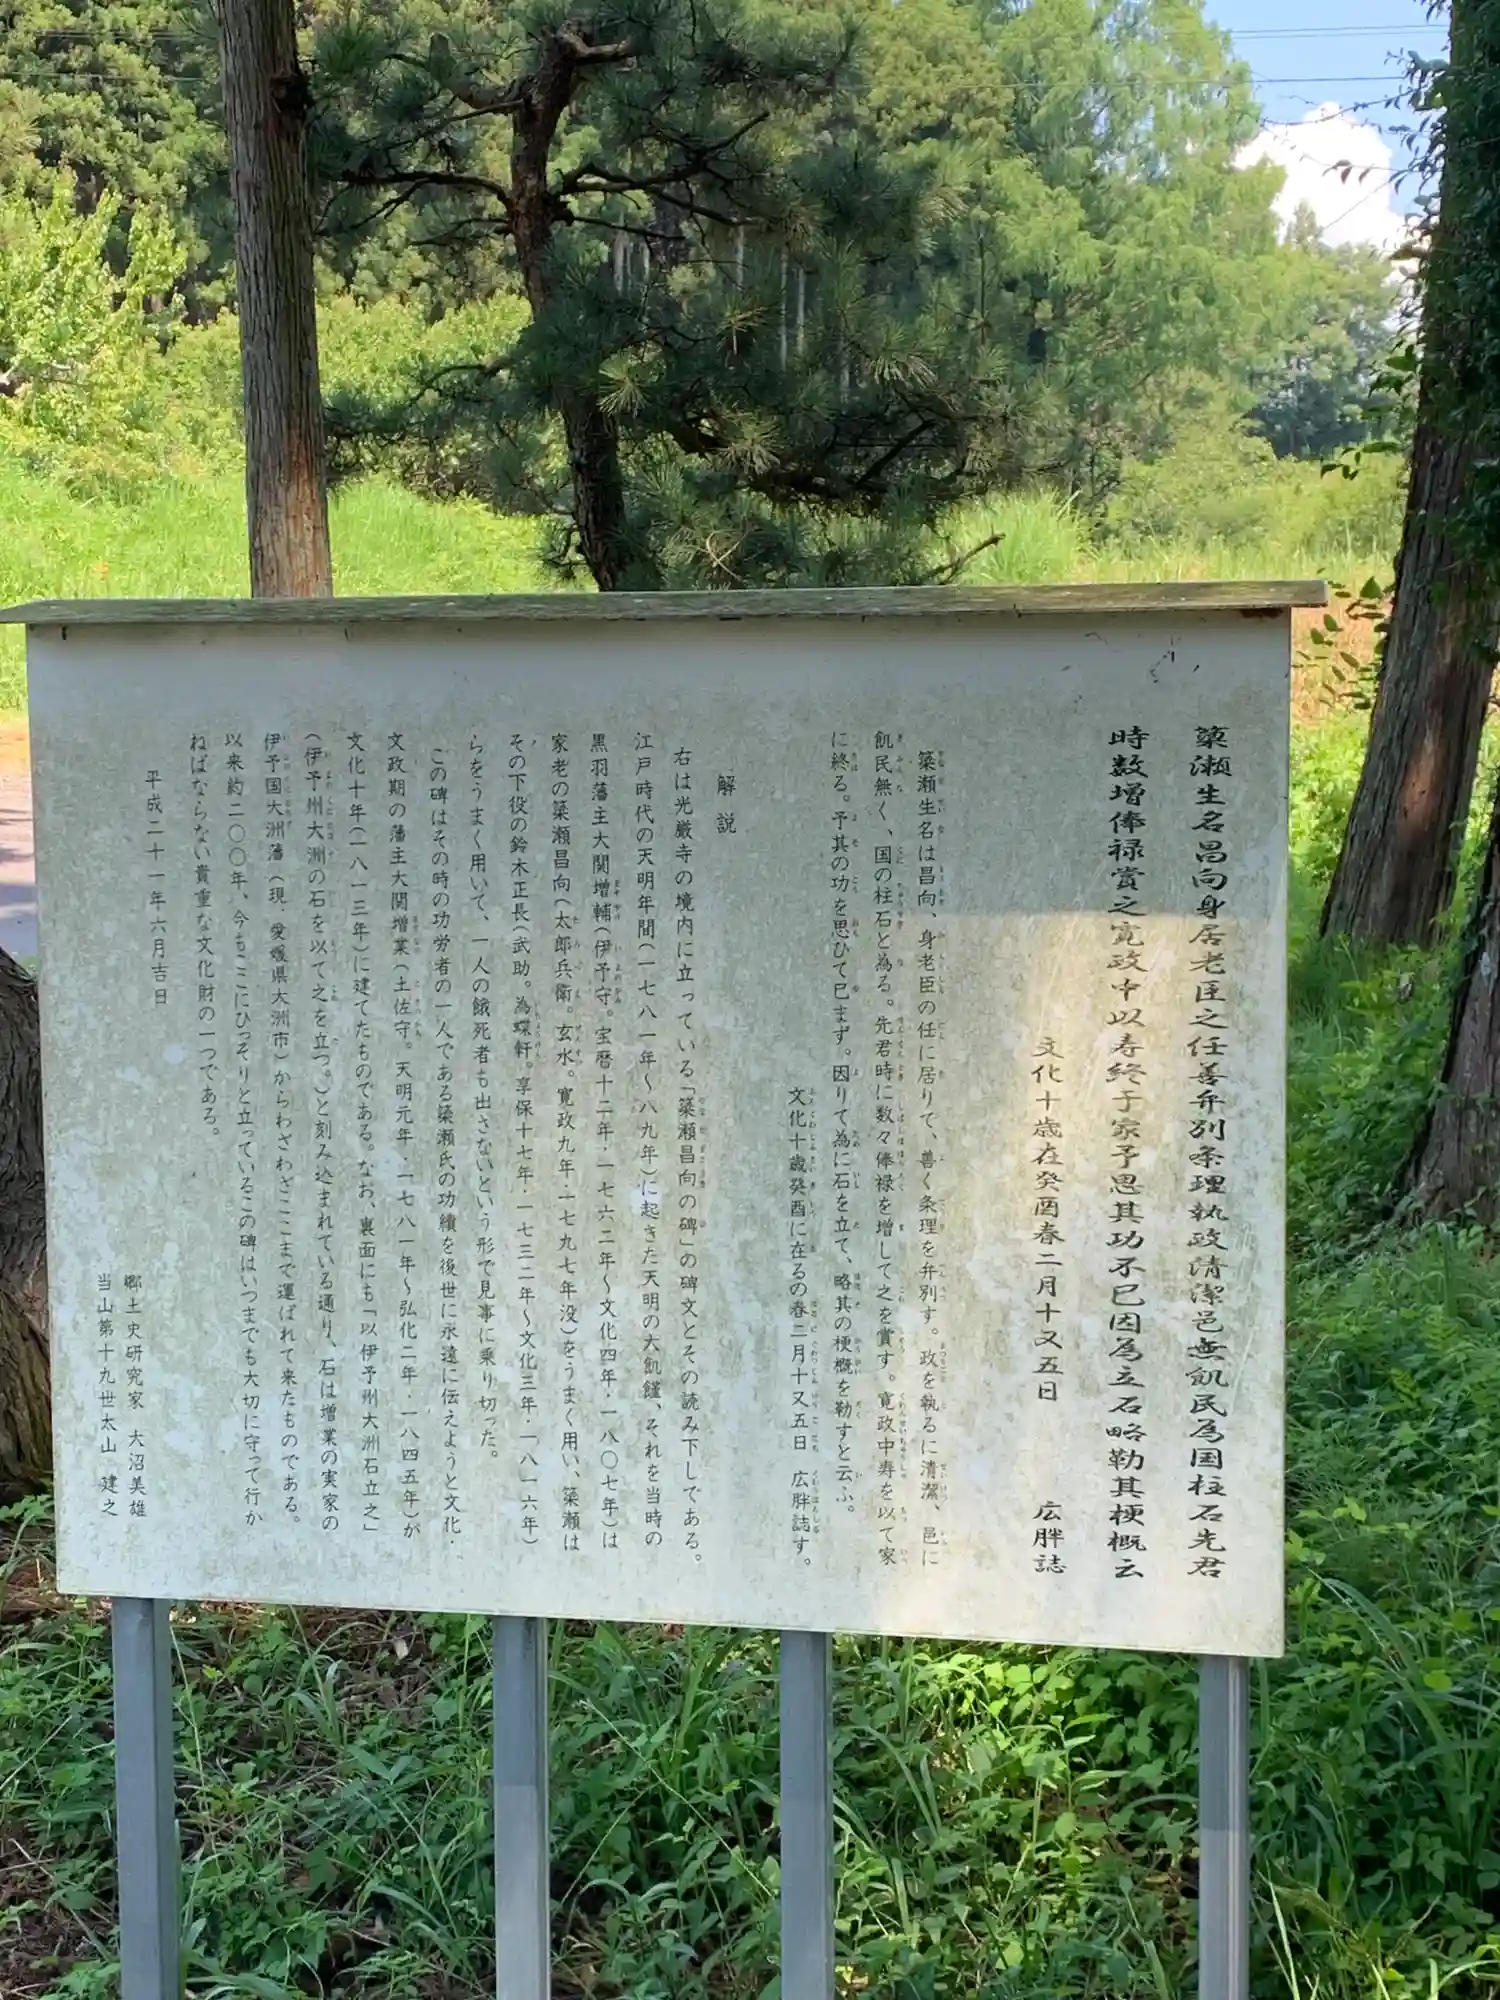 簗瀬生名昌向身居老臣之任善弁別条理執政清潔邑無飢民為国柱石先君
時数増俸禄賞之寛政中以寿終于家予思其功不已因為立石略勒其梗概云
文化十歳在癸酉春二月十又五日　広胖誌
簗瀬生名は昌向、身老臣の任に居りて、善く条理を弁別す。政を執るに清潔、邑に
飢民無く、国の柱石と為る。先君時に数々俸禄を増して之を賞す。寛政中寿を以て家
に終る。予其の功を思ひて已まず。因りて為に石を立て、略其の梗概を勒すと云ふ。
文化十歳癸酉に在るの春二月十又五日　広胖誌す。
解説
右は光厳寺の境内に立っている「簗瀬昌向の碑」の碑文とその読み下しである。
江戸時代の天明年間（一七八一年〜八九年）に起きた天明の大飢饉、それを当時の
黒羽藩主大関増輔（伊予守。宝暦十二年・一七六二年〜文化四年・一八〇七年）は
家老の簗瀬昌向（太郎兵衛。玄水。寛政九年・一七九七年没）をうまく用い、簗瀬は
その下役の鈴木正長（武助。為蝶軒。享保十七年・一七三二年〜文化三年・一八一六年）
らをうまく用いて、一人の餓死者も出さないという形で見事に乗り切った。
この碑はその時の功労者の一人である簗瀬氏の功績を後世に永遠に伝えようと文化・
文政期の藩主大関増業（土佐守。天明元年・一七八一年〜弘化二年・一八四五年）が
文化十年（一八一三年）に建てたものである。なお、裏面にも「以伊予州大洲石立之」
（伊予州大洲の石を以て之を立つ。）と刻み込まれている通り、石は増業の実家の
伊予国大洲藩（現・愛媛県大洲市）からわざわざここまで運ばれて来たものである。
以来約二〇〇年、今もここにひっそりと立っているこの碑はいつまでも大切に守って行か
ねばならない貴重な文化財の一つである。
平成二十一年六月吉日
郷土史研究家　大沼美雄
当山第十九世太山　建之